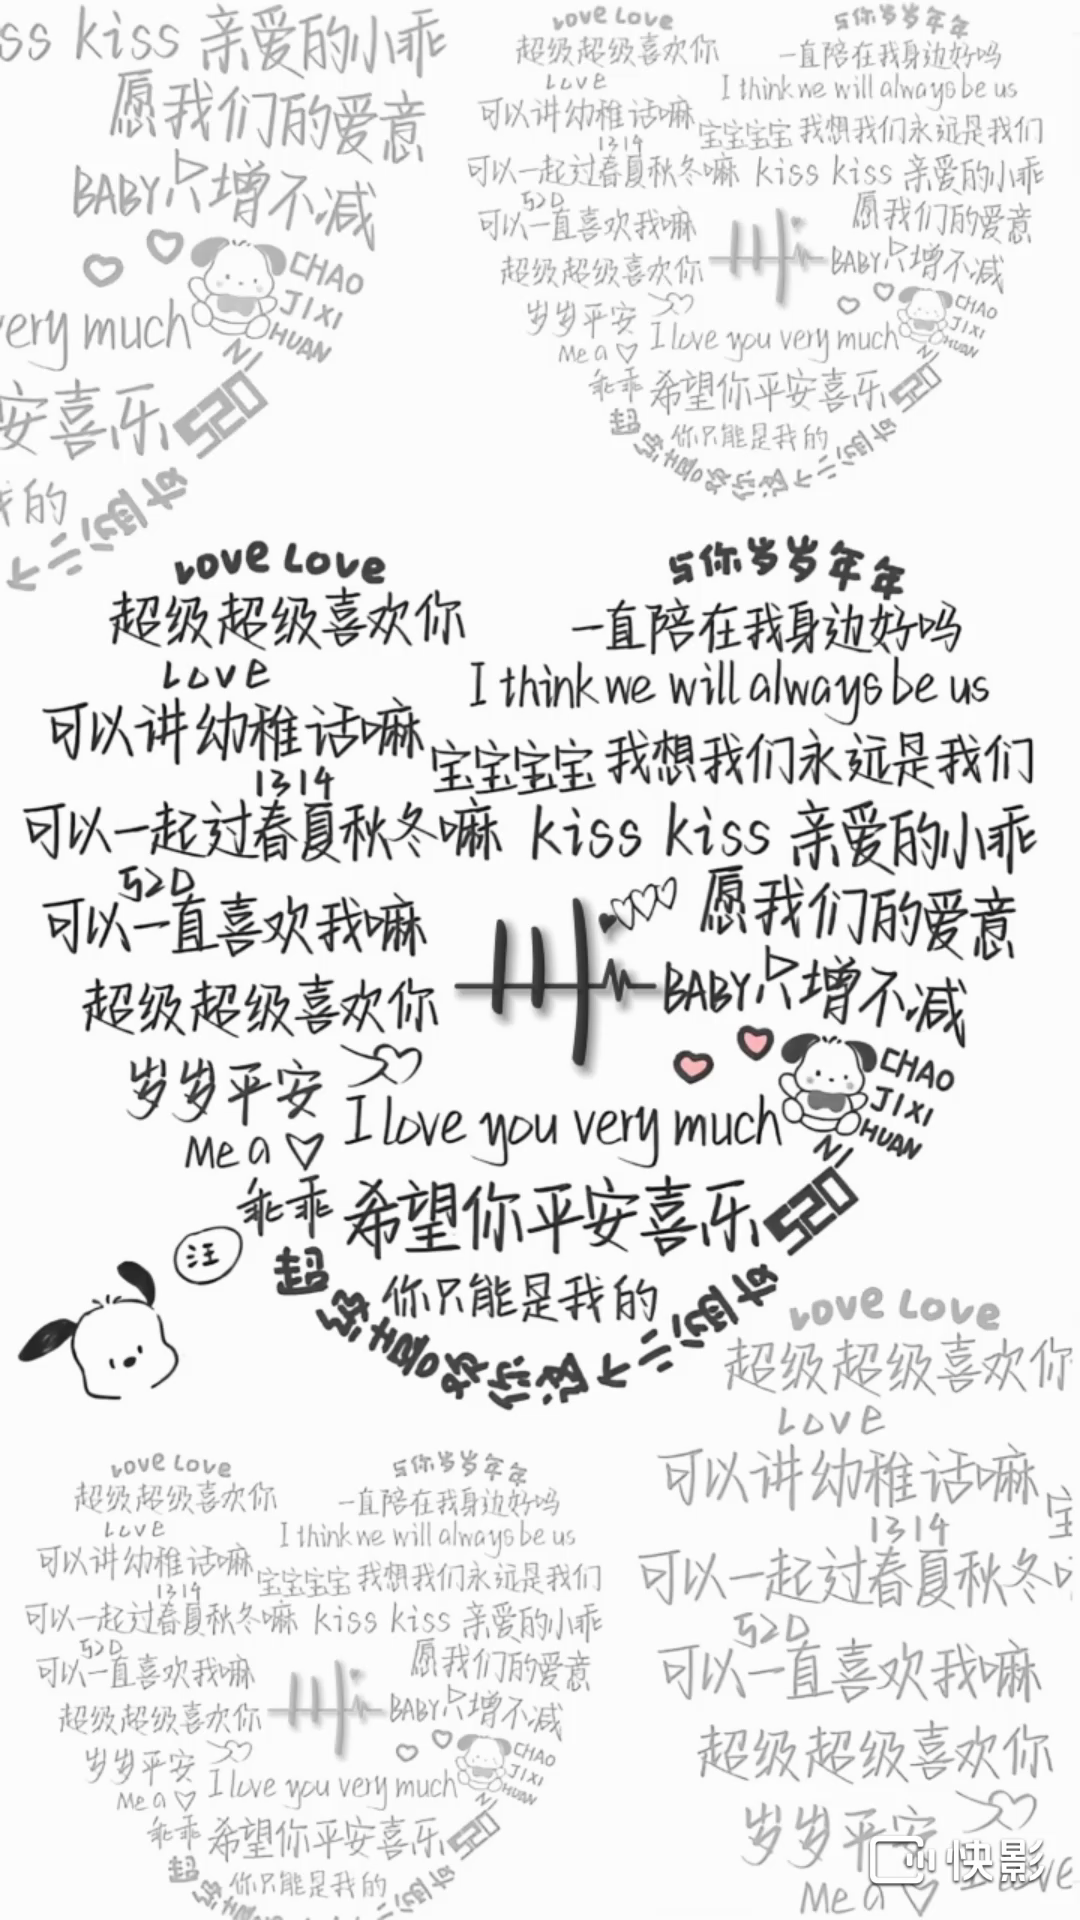 ss kiss 亲爱的小乖
愿我们的爱意
BABY只增不减
CHAO
JIXI
HUAN
NI
very much
安喜乐 520
我的
Love Love
与你岁岁年年
超级超级喜欢你
一直陪在我身边好吗
Love
I think we will always be us
可以讲幼稚话嘛
宝宝宝宝 我想我们永远是我们
1314
可以一起过春夏秋冬嘛 kiss kiss 亲爱的小乖
520
愿我们的爱意
可以一直喜欢我嘛
BABY只增不减
超级超级喜欢你
岁岁平安
CHAO
JIXI
HUAN
NI
I love you very much
Me a
乖乖 希望你平安喜乐 520
你只能是我的
Love Love
与你岁岁年年
超级超级喜欢你
一直陪在我身边好吗
Love
I think we will always be us
可以讲幼稚话嘛
宝宝宝宝 我想我们永远是我们
1314
可以一起过春夏秋冬嘛 kiss kiss 亲爱的小乖
520
愿我们的爱意
可以一直喜欢我嘛
BABY只增不减
超级超级喜欢你
岁岁平安
CHAO
JIXI
HUAN
NI
I love you very much
Me a
乖乖 希望你平安喜乐 520
汪
你只能是我的
超级喜欢你这个二
Love Love
超级超级喜欢你
Love
可以讲幼稚话嘛
1314
可以一起过春夏秋冬
520
可以一直喜欢我嘛
超级超级喜欢你
岁岁平安
I love
Me a
Love Love
与你岁岁年年
超级超级喜欢你
一直陪在我身边好吗
Love
I think we will always be us
可以讲幼稚话嘛
宝宝宝宝 我想我们永远是我们
1314
可以一起过春夏秋冬嘛 kiss kiss 亲爱的小乖
520
愿我们的爱意
可以一直喜欢我嘛
BABY只增不减
超级超级喜欢你
岁岁平安
CHAO
JIXI
HUAN
NI
I love you very much
Me a
乖乖 希望你平安喜乐 520
你只能是我的
快影